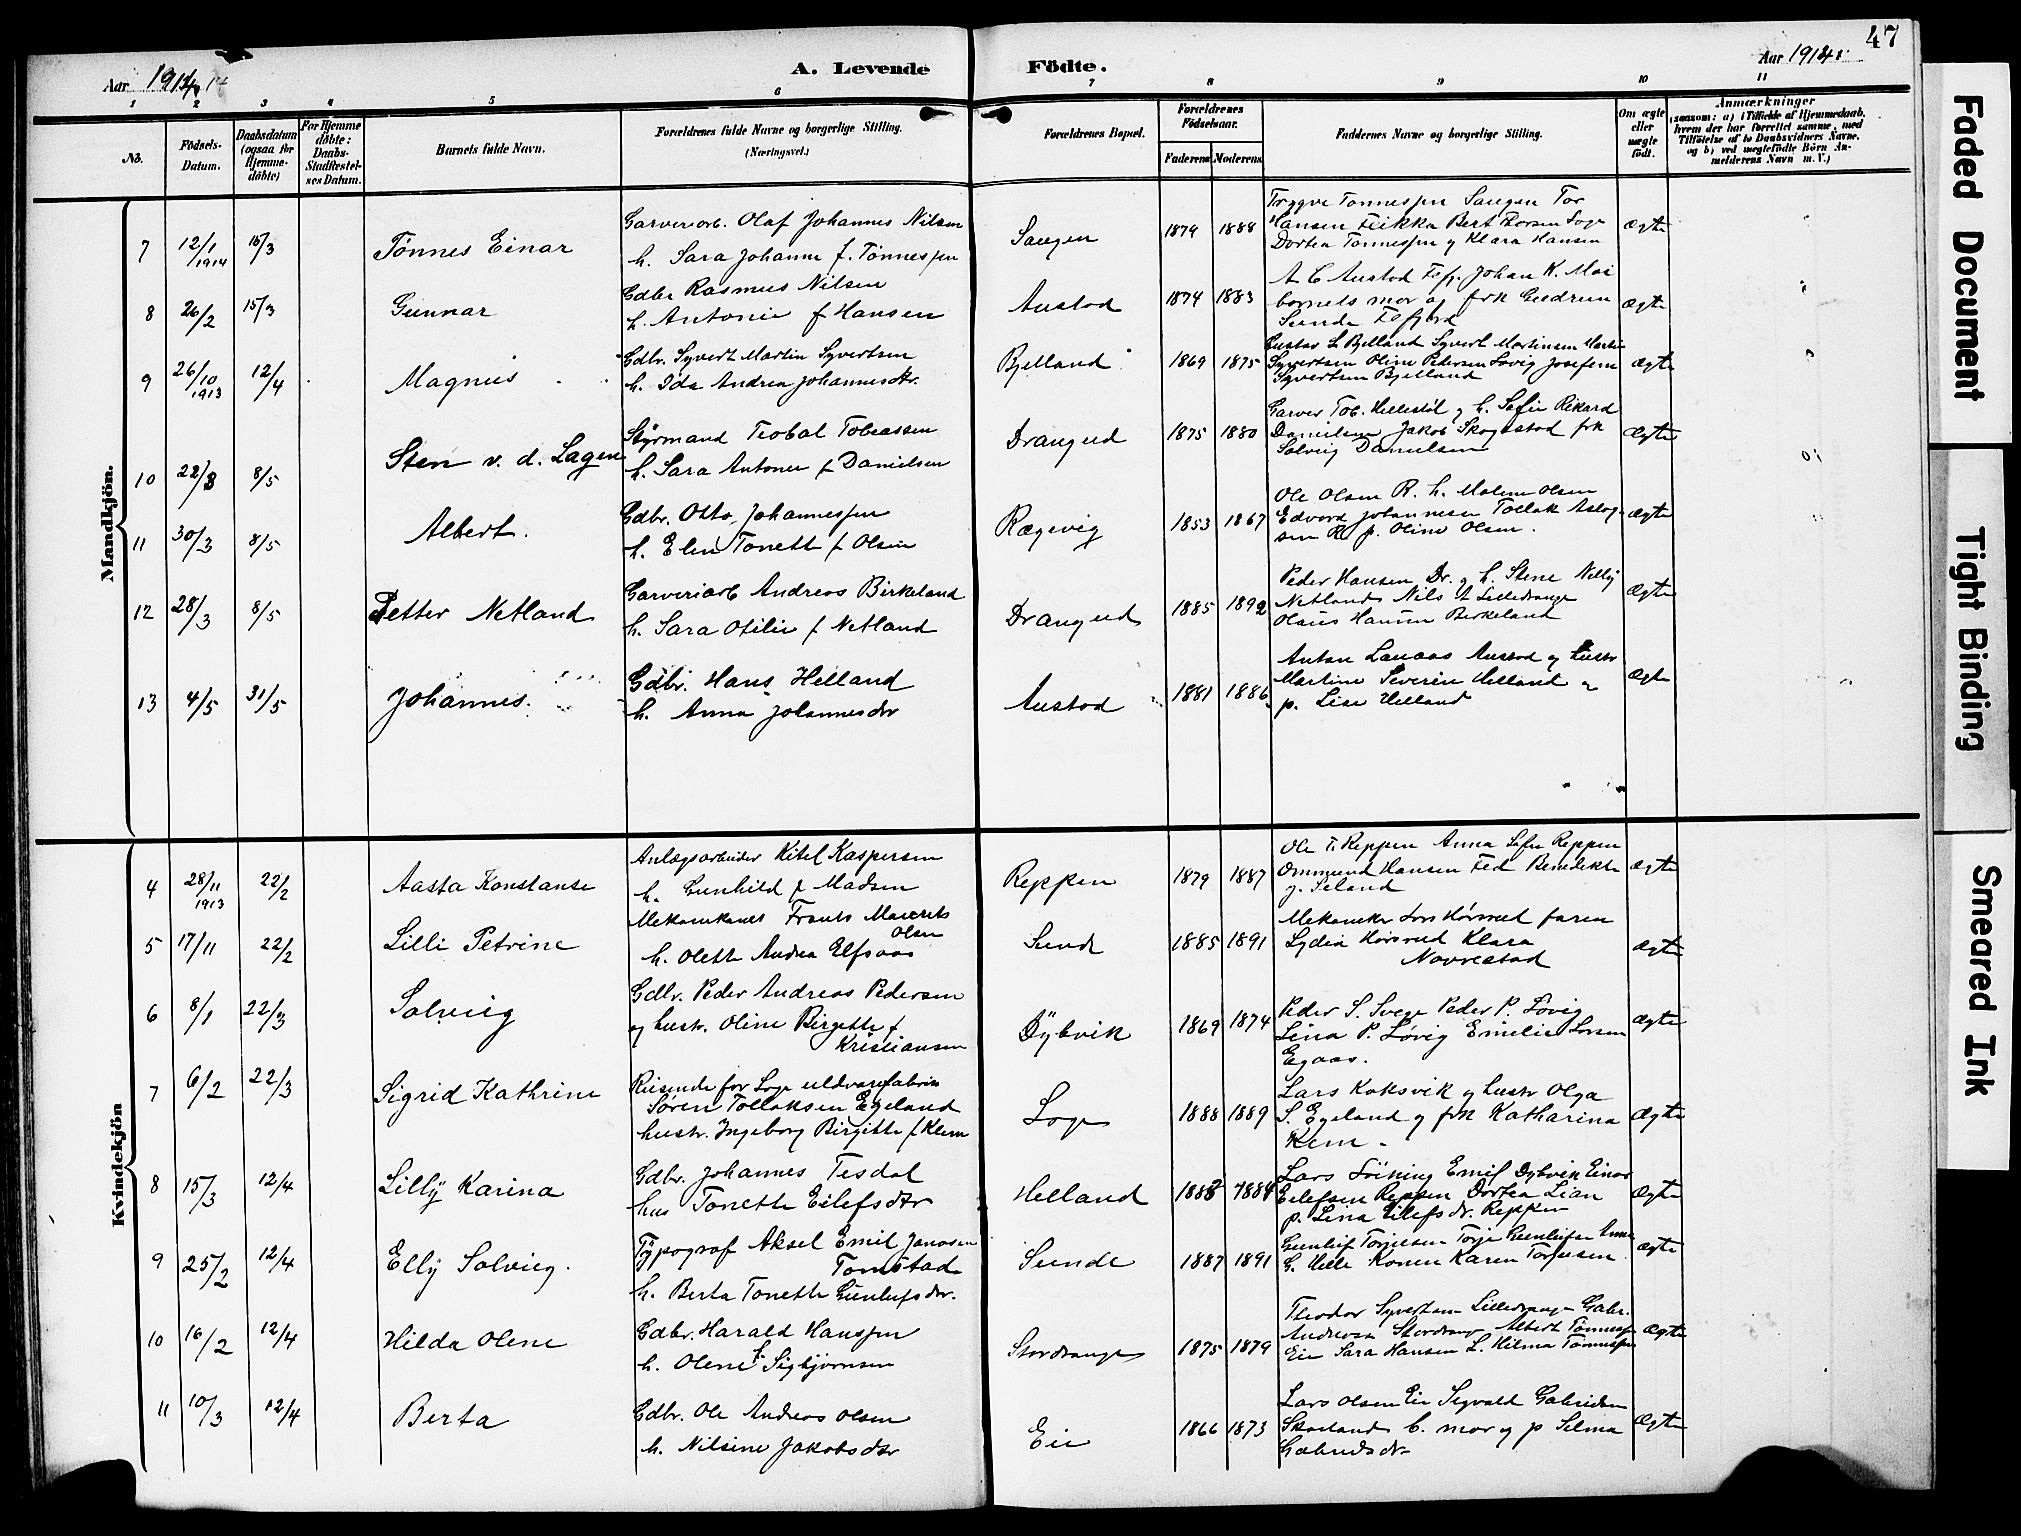 47
Aar 1914
A. Levende Födte.
Aar 1914
1 2 3 4 5 6 7 8 9 10 11
No.
Födsels-Datum.
Daabsdatum (ogsaa for Hjemme-döbte)
For Hjemme döbte: Daabs-Stadfæstel-ses Datum.
Barnets fulde Navn.
Forældrenes fulde Navne og borgerlige Stilling.
(Næringsvei.)
Forældrenes Bopæl.
Forældrenes Födselsaar.
Faderens Moderens
Faddernes Navne og borgerlige Stilling.
Om ægte eller uægte födt.
Anmærkninger
(saasom: a) i Tilfælde af Hjemmedaab, hvem der har forrettet samme, med Tilföielse af to Daabsvidners Navne, og b) ved uægtefödte Börn An-melderens Navn m. V.)
Mandkjön.
7 12/1 1914 15/3 Tönnes Einar
Garveriarb. Olaf Johannes Nilsen
h. Sara Johanne f. Tönnessen
1879 1888
Trygve Tønnessen
Dortea Tønnessen g Klara Hansen
Ægte
8 26/2 15/3 Gunnar
Gdbr Rasmus Nilsen
h. Antonie f Hansen
Austad 1874 1883
A C Austad Johan K. Moi
barnets mor og frk Gudrun
Sunde
Ægte
9 26/10 1913 12/4 Magnus
Gdbr. Syvert Martin Syvertsen
h. Ida Andrea Johannesdtr.
Bjelland 1869 1875
Gustav L Bjelland Syvert Martinsen
Syvertsen Oline Pedersen Lövig Josefine
Syvertsen Bjelland
Ægte
10 22/3 8/5 Sten v. d. Lagen
Styrmand Teobal Tobiassen
h. Sara Antonie f Danielsen
Drangeid 1875 1880
Garver Tob. Hellestöl g h. Sofie Rikard
Danielsen Jakob Skogestad frk
Solveig Danielsen
Ægte
11 30/3 8/5 Albert.
Gdbr. Otto Johannessen
h. Elen Tonette f Olsen
Rægevig 1853 1867
Ole Olsen R. h. Malene Olsen
Edvard Johannesen Tollak Aslag-
sen R p. Oline Olsen.
Ægte
12 28/3 8/5 Petter Netland
Garveriarb Andreas Birkeland
h. Sara Otilie f Netland
Drangeid 1885 1892
Peder Hansen Dr. g h. Stene Nelly
Netland Nils A Lilledrange
Olaus Hansen Birkeland
Ægte
13 4/5 31/5 Johannes.
Gdbr. Hans Helland
h. Anna Johannesdtr
Austad 1881 1886
Anton Lauaas Austad g hustr
Martine Severin Helland g
p. Lise Helland
Ægte
Kvindekjön
4 28/11 1913 22/2 Aasta Konstanse
Anlægsarbeider Kitel Kaspersen
h. Gunhild f Madsen
Reppen 1879 1887
Ole T. Reppen Anna Sofie Reppen
Ommund Hansen Fed Benedikte
g. Seland
Ægte
5 17/11 22/2 Lilli Petrine
Mekanikaner Frants
Olsen
h. Olette Andrea Elfsaas
Sund 1885 1891
Mekaniker faren
Lydia Klara
Navrestad
Ægte
6 8/1 22/3 Solveig
Gdbr. Peder Andreas Pedersen
og hustr. Oline Birgitte f
Kristiansen
Dybvik 1869 1874
Peder S. Svege Peder P. Lövig
Lina P. Lövig Emilie Larsen
Egaas.
Ægte
7 6/2 22/3 Sigrid Kathrine
Reisende for Loge uldvarefabrik
Sören Tollaksen Egeland
hustr. Ingeborg Birgitte f Klem
Loge 1888 1889
Lars Koksvik g hustr Olga
S. Egeland g frk Katharina
Klem
Ægte
8 15/3 12/4 Lilly Karina
Gdbr. Johannes Tesdal
hus Tonette Eilefsdtr
Helland 1888 1884
Lars Emil Dybvik Einar
Eilefsen Reppen Dortea Lian
p. Lina Eilefsdr. Reppen
Ægte
9 25/2 12/4 Elly Solveig.
Typograf Aksel Emil Janosen
Tomstad
h. Berta Tonette Gunleifsdtr.
Sunde 1887 1891
Gunleif Torjussen Torje Gunleifsen
G. Helle Konen Karen Torjusen
Ægte
10 16/2 12/4 Hilda Olene
Gdbr. Harald Hanssen
h. Olene f Sigbjörnsen
Stordrange 1875 1879
Theodor Syvertsen Lilledrange Gabr.
Andreasen Stordrange Albert Tönnessen
Eie Sara Hansen L. Hilma Tönnessen
Ægte
11 10/3 12/4 Berta
Gdbr. Ole Andreas Olsen
h. Nilsine Jakobsdtr
Eie 1866 1873
Lars Olsen Eie Sigvald Gabrielsen
Skarland b. mor g p Selma
Gabrielsdr.
Ægte
Faded Document
Tight Binding
Smeared Ink